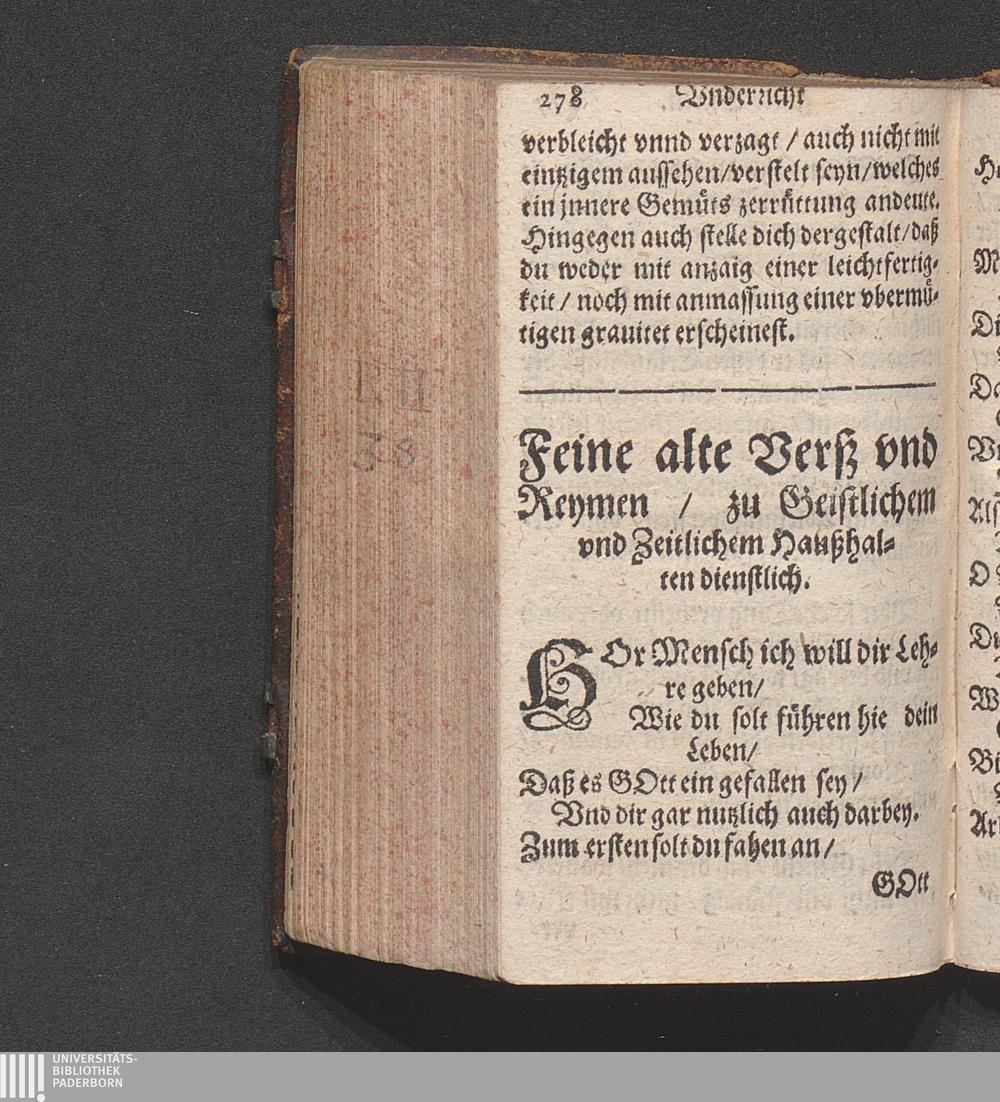 278 Vnderricht
verbleicht vnnd verzagt / auch nicht mit
eintzigem aussehen/verstelt seyn/welches
ein jnnere Gemüts zerrüttung andeute.
Hingegen auch stelle dich dergestalt/daß
du weder mit anzaig einer leichtfertig-
keit / noch mit anmassung einer vbermü-
tigen grauitet erscheinest.
Feine alte Verß vnd
Reymen / zu Geistlichem
vnd Zeitlichem Haußhal-
ten dienstlich.
HOr Mensch ich will dir Leh-
re geben/
Wie du solt führen hie dein
Leben/
Daß es GOtt ein gefallen sey /
Vnd dir gar nutzlich auch darbey.
Zum ersten solt du fahen an /
GOtt
I. II
38
Di
Da
Als
O
Du
W
Bi
UNIVERSITÄTS-
BIBLIOTHEK
PADERBORN